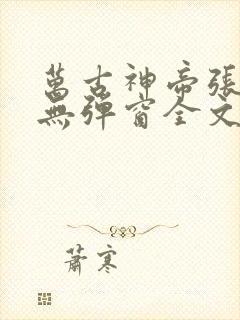 萬古神帝張
無彈窗全文
蕭寒